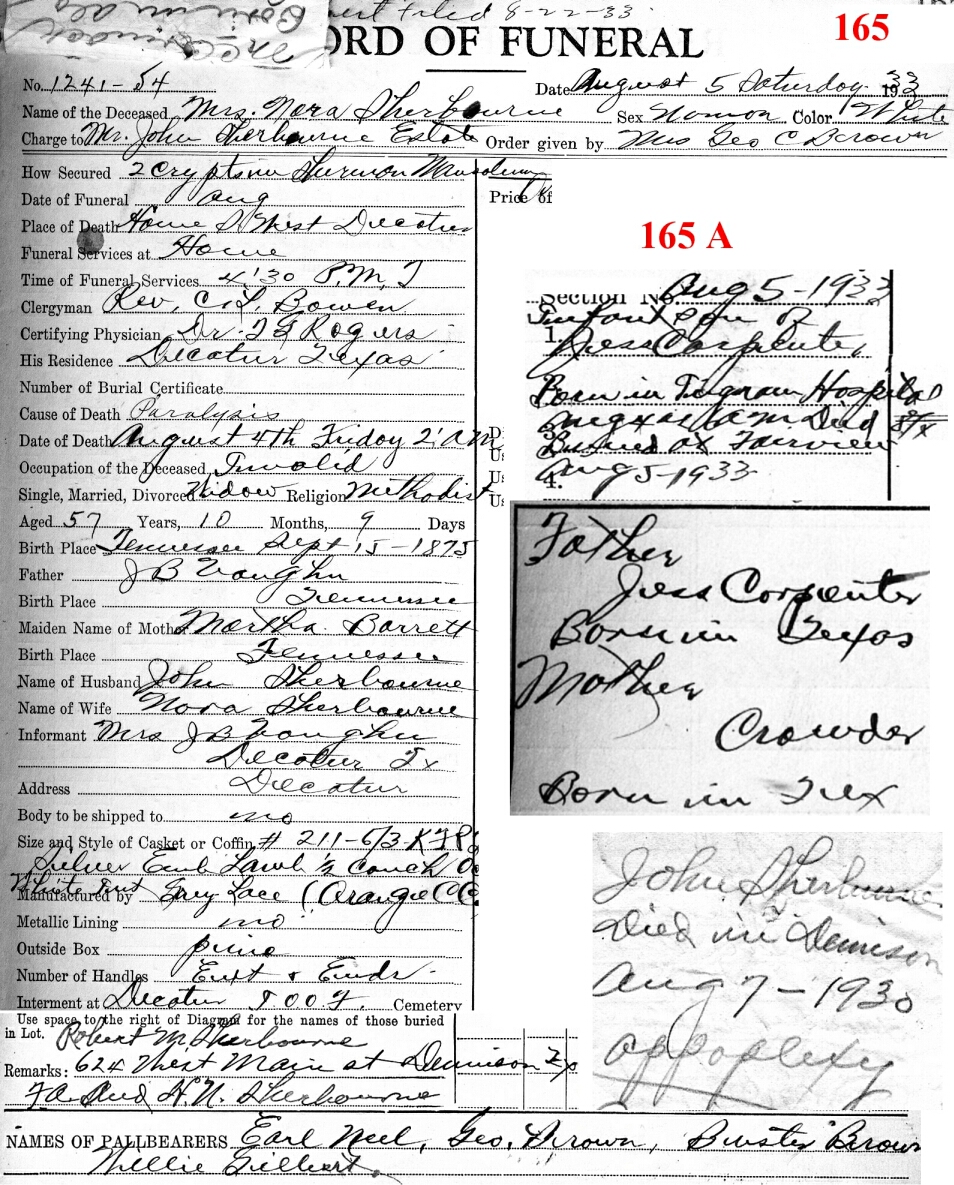 Cert Filed 8-22-33
165
ORD OF FUNERAL
No. 1241-54 Date August 5 Saturday 1933
Name of the Deceased Mrs. Nora Sherbourne Sex Woman Color White
Charge to Mr. John Sherbourne Estate Order given by Mrs Geo C Brown
How Secured 2 Crypts in Mausoleum
Date of Funeral Aug
Price of
Place of Death Home S West Decatur
Funeral Services at Home
Time of Funeral Services 4:30 P.M.
Clergyman Rev. C.L. Bowen
Certifying Physician Dr. Rogers
His Residence Decatur Texas
Number of Burial Certificate
Cause of Death Paralysis
Date of Death August 4th Friday 2 a M
Occupation of the Deceased Invalid
Single, Married, Divorced Widow Religion Methodist
Aged 57 Years, 10 Months, 9 Days
Birth Place Tennessee Sept 15-1875
Father J B Vaughn
Birth Place Tennessee
Maiden Name of Mother Martha Barrett
Birth Place Tennessee
Name of Husband John Sherbourne
Name of Wife Nora Sherbourne
Informant Mrs J B Vaughn
Decatur Tx
Address Decatur
Body to be shipped to no
Size and Style of Casket or Coffin # 211-6/3
Silver Emb Lamb Couch
Manufactured by Grey Lace (Orange
Metallic Lining no
Outside Box pine
Number of Handles Ext & Ends
Interment at Decatur I O O F. Cemetery
Use space to the right of Diagram for the names of those buried
in Lot.
Robert M Sherbourne
Remarks: 624 West Main st Dennison Tx
Sherbourne
NAMES OF PALLBEARERS Earl Neel, Geo. Brown, Buster Brown
Willie Gilbert.
165 A
Section No. Aug 5-1933
Infant Son of
1. Jess Carpenter,
Born in Ingram Hospital
Aug 4 at A M Died
Buried at Fairview
4. Aug 5-1933
Father
Jess Carpenter
Born in Texas
Mother
Crowder
Born in Tex
John Sherbourne
Died in Denison
Aug 7-1930
appoplexy